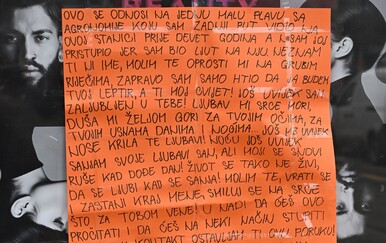 BEAUTY
OVO SE ODNOSI NA JEDNU MALU PLAVU SA
AGRONOMIJE KOJU SAM ZADNJI PUT VIDIO NA
OVOJ STANICI PRIJE DEVET GODINA I NISAM JOJ
PRISTUPIO JER SAM BIO LJUT NA NJU NEZNAM
TI NI IME, MOLIM TE OPROSTI MI NA GRUBIM
RIJEČIMA, ZAPRAVO SAM SAMO HTIO DA JA BUDEM
TVOJ LEPTIR, A TI MOJ CVIJET! JOŠ UVIJEK SAM
ZALJUBLJEN U TEBE! LJUBAVI MI SRCE MORI,
DUŠA MI ŽELJOM GORI ZA TVOJIM OČIMA, ZA
TVOJIM USNAMA DANIMA I NOĆIMA. JOŠ UVIJEK
NOSE KRILA TE LJUBAVI! NOĆU JOŠ UVIJEK
SANJAM SVOJE LJUBAVI SAN, ALI MOJI SE SNOVI
RUŠE KAD DOĐE DAN! ŽIVOT SE TAKO NE ŽIVI,
DA SE LJUBI KAD SE SANJA! MOLIM TE, VRATI SE
I ZASTANI KRAJ MENE, SMILUJ SE NA SRCE
ŠTO ZA TOBOM VENE! U NADI DA ĆEŠ OVO
PROČITATI I DA ĆEŠ NA NEKI NAČIN STUPITI
KONTAKT OSTAVLJAM TI OVU PORUKU!